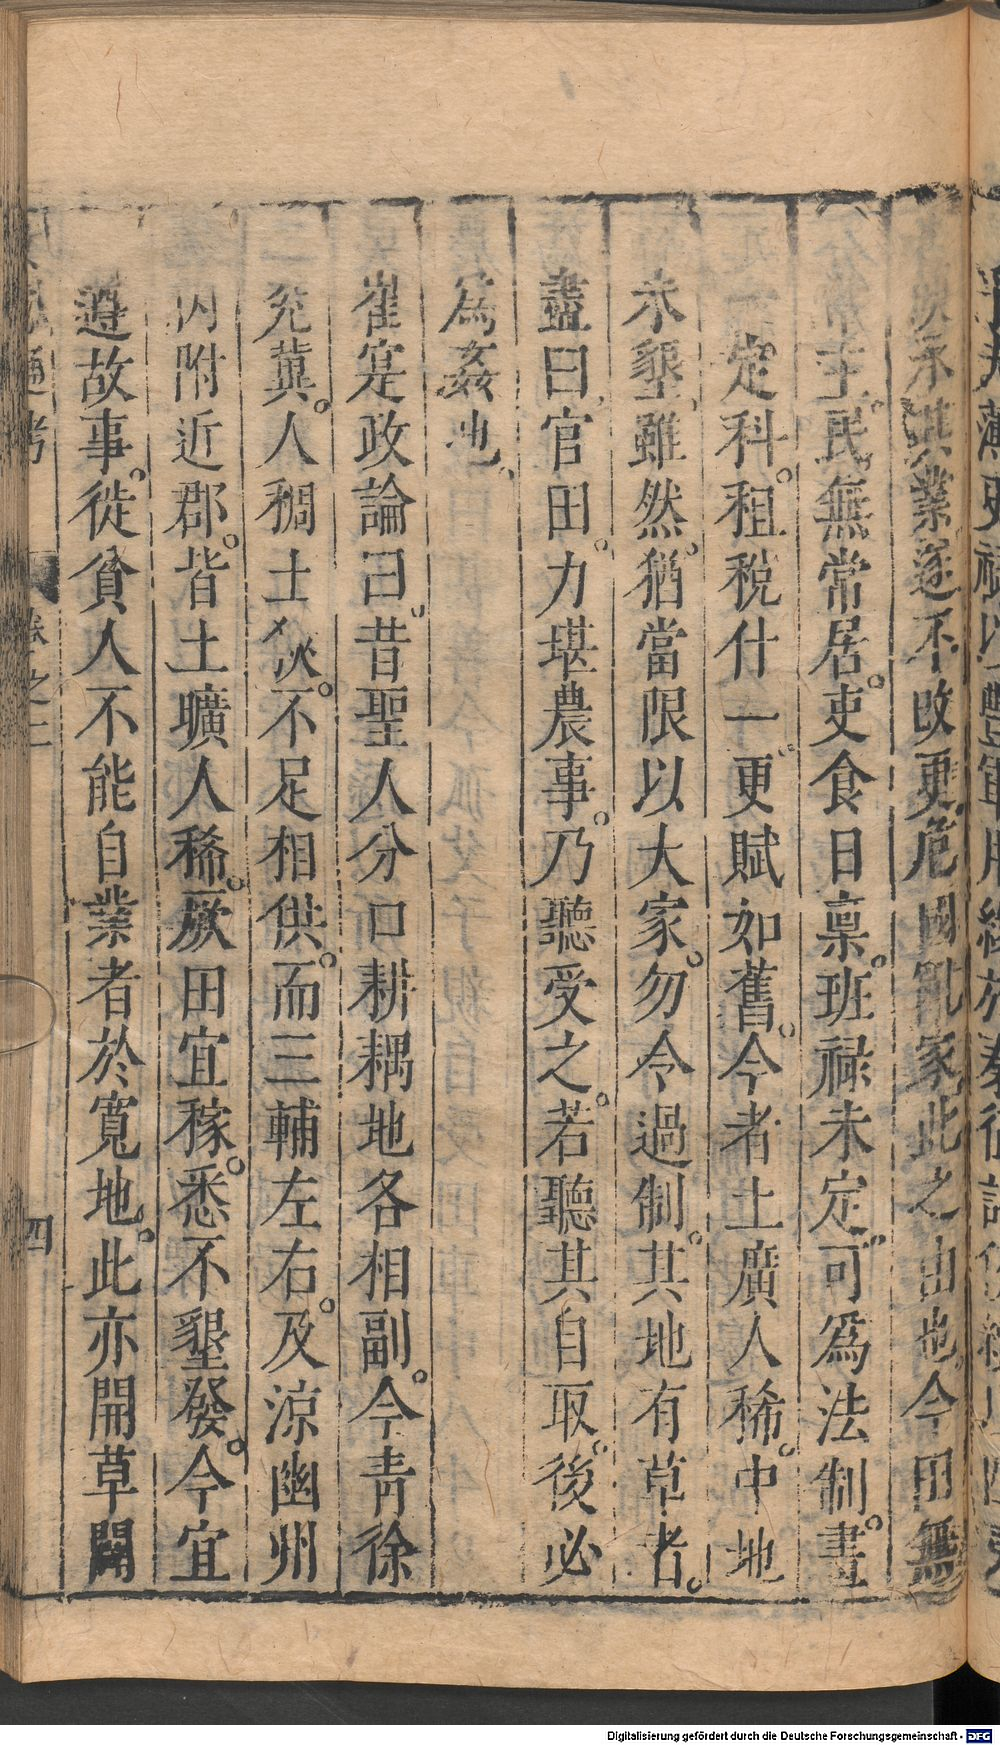 承其業遂不改更危國亂家此之由也今田無
常主民無常居吏食日稟班禄未定可爲法制畫
一定科租稅什一更賦如舊今者土廣人稀中地
未墾雖然猶當限以大家勿令過制其地有草者
盡曰官田力堪農事乃聽受之若聽其自取後必
爲姦也
崔寔政論曰昔聖人分口耕耦地各相副今青徐
兖冀人稠土狹不足相供而三輔左右及涼幽州
内附近郡皆土曠人稀厥田宜稼悉不墾發今宜
遵故事徙貧人不能自業者於寬地此亦開草闢
通考
卷之二
四
Digitalisierung gefördert durch die Deutsche Forschungsgemeinschaft - DFG